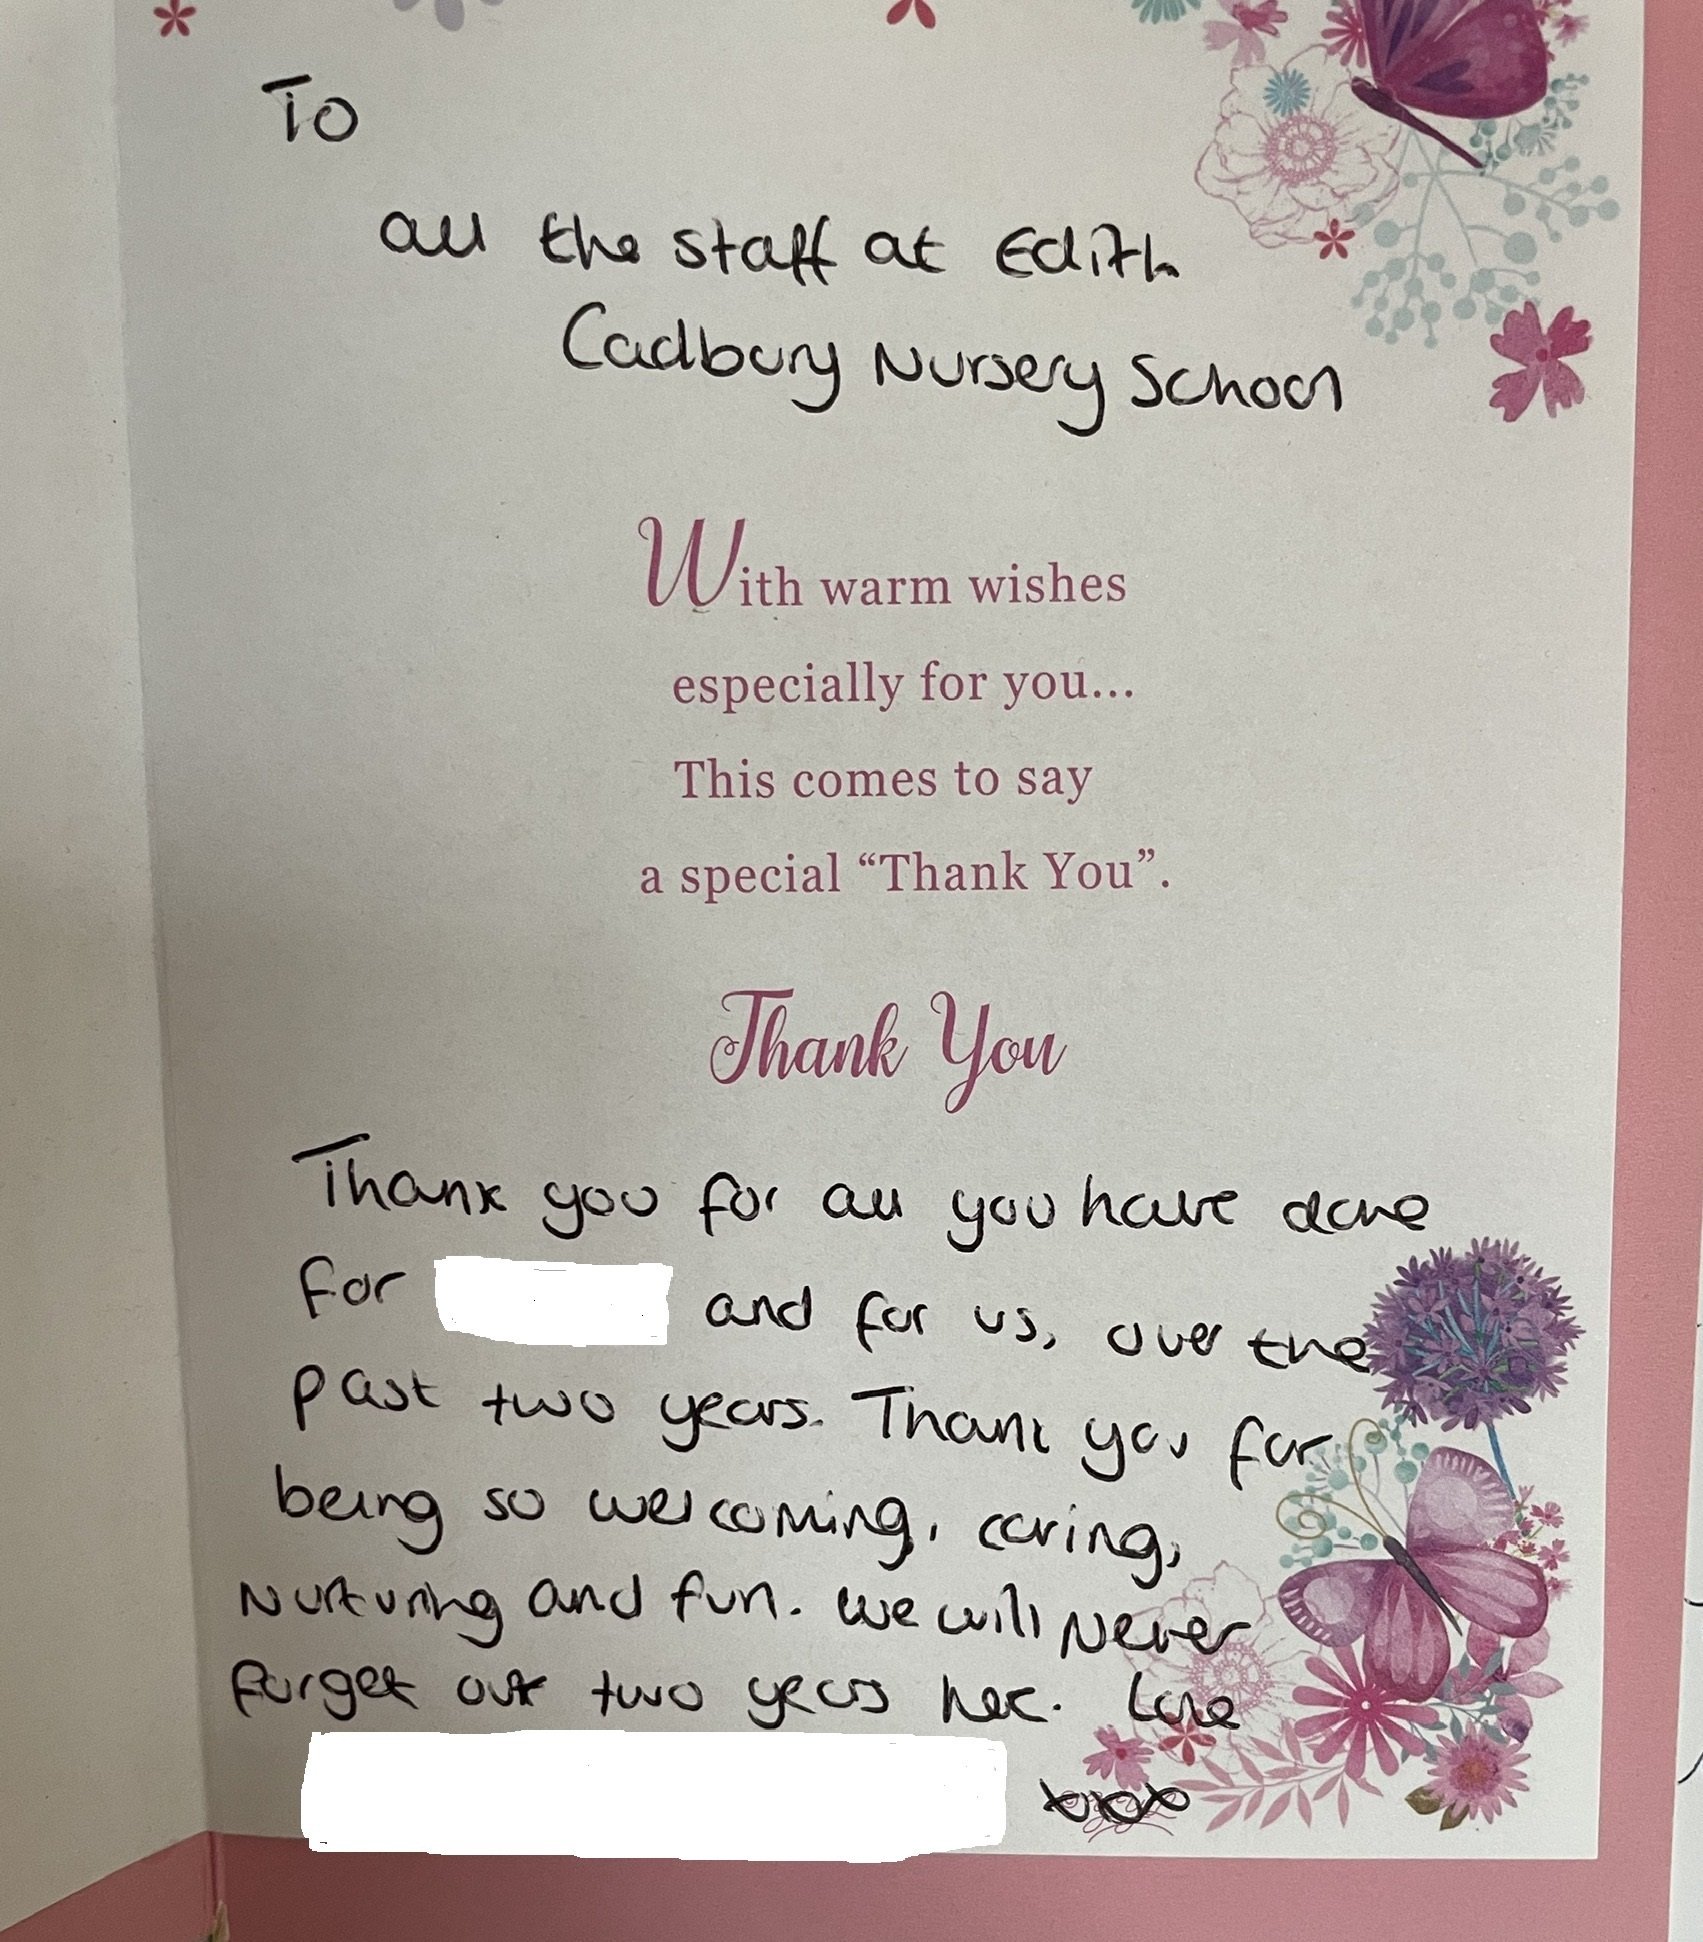 To
all the staff at Edith
Cadbury Nursery School
With warm wishes
especially for you...
This comes to say
a special “Thank You”.
Thank You
Thank you for all you have done
for and for us, over the
past two years. Thank you for
being so welcoming, caring,
Nurturing and fun. We will Never
forget our two years here. Love
xxx